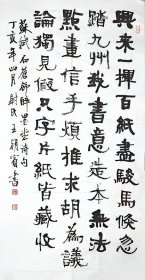 興来一揮百紙盡駿馬倏忽
踏九州我書意造本無法
點畫信手煩推求胡為議
論獨見假只字片紙皆藏收
蘇軾石蒼舒醉墨堂詩句
丁亥年四月尉氏王